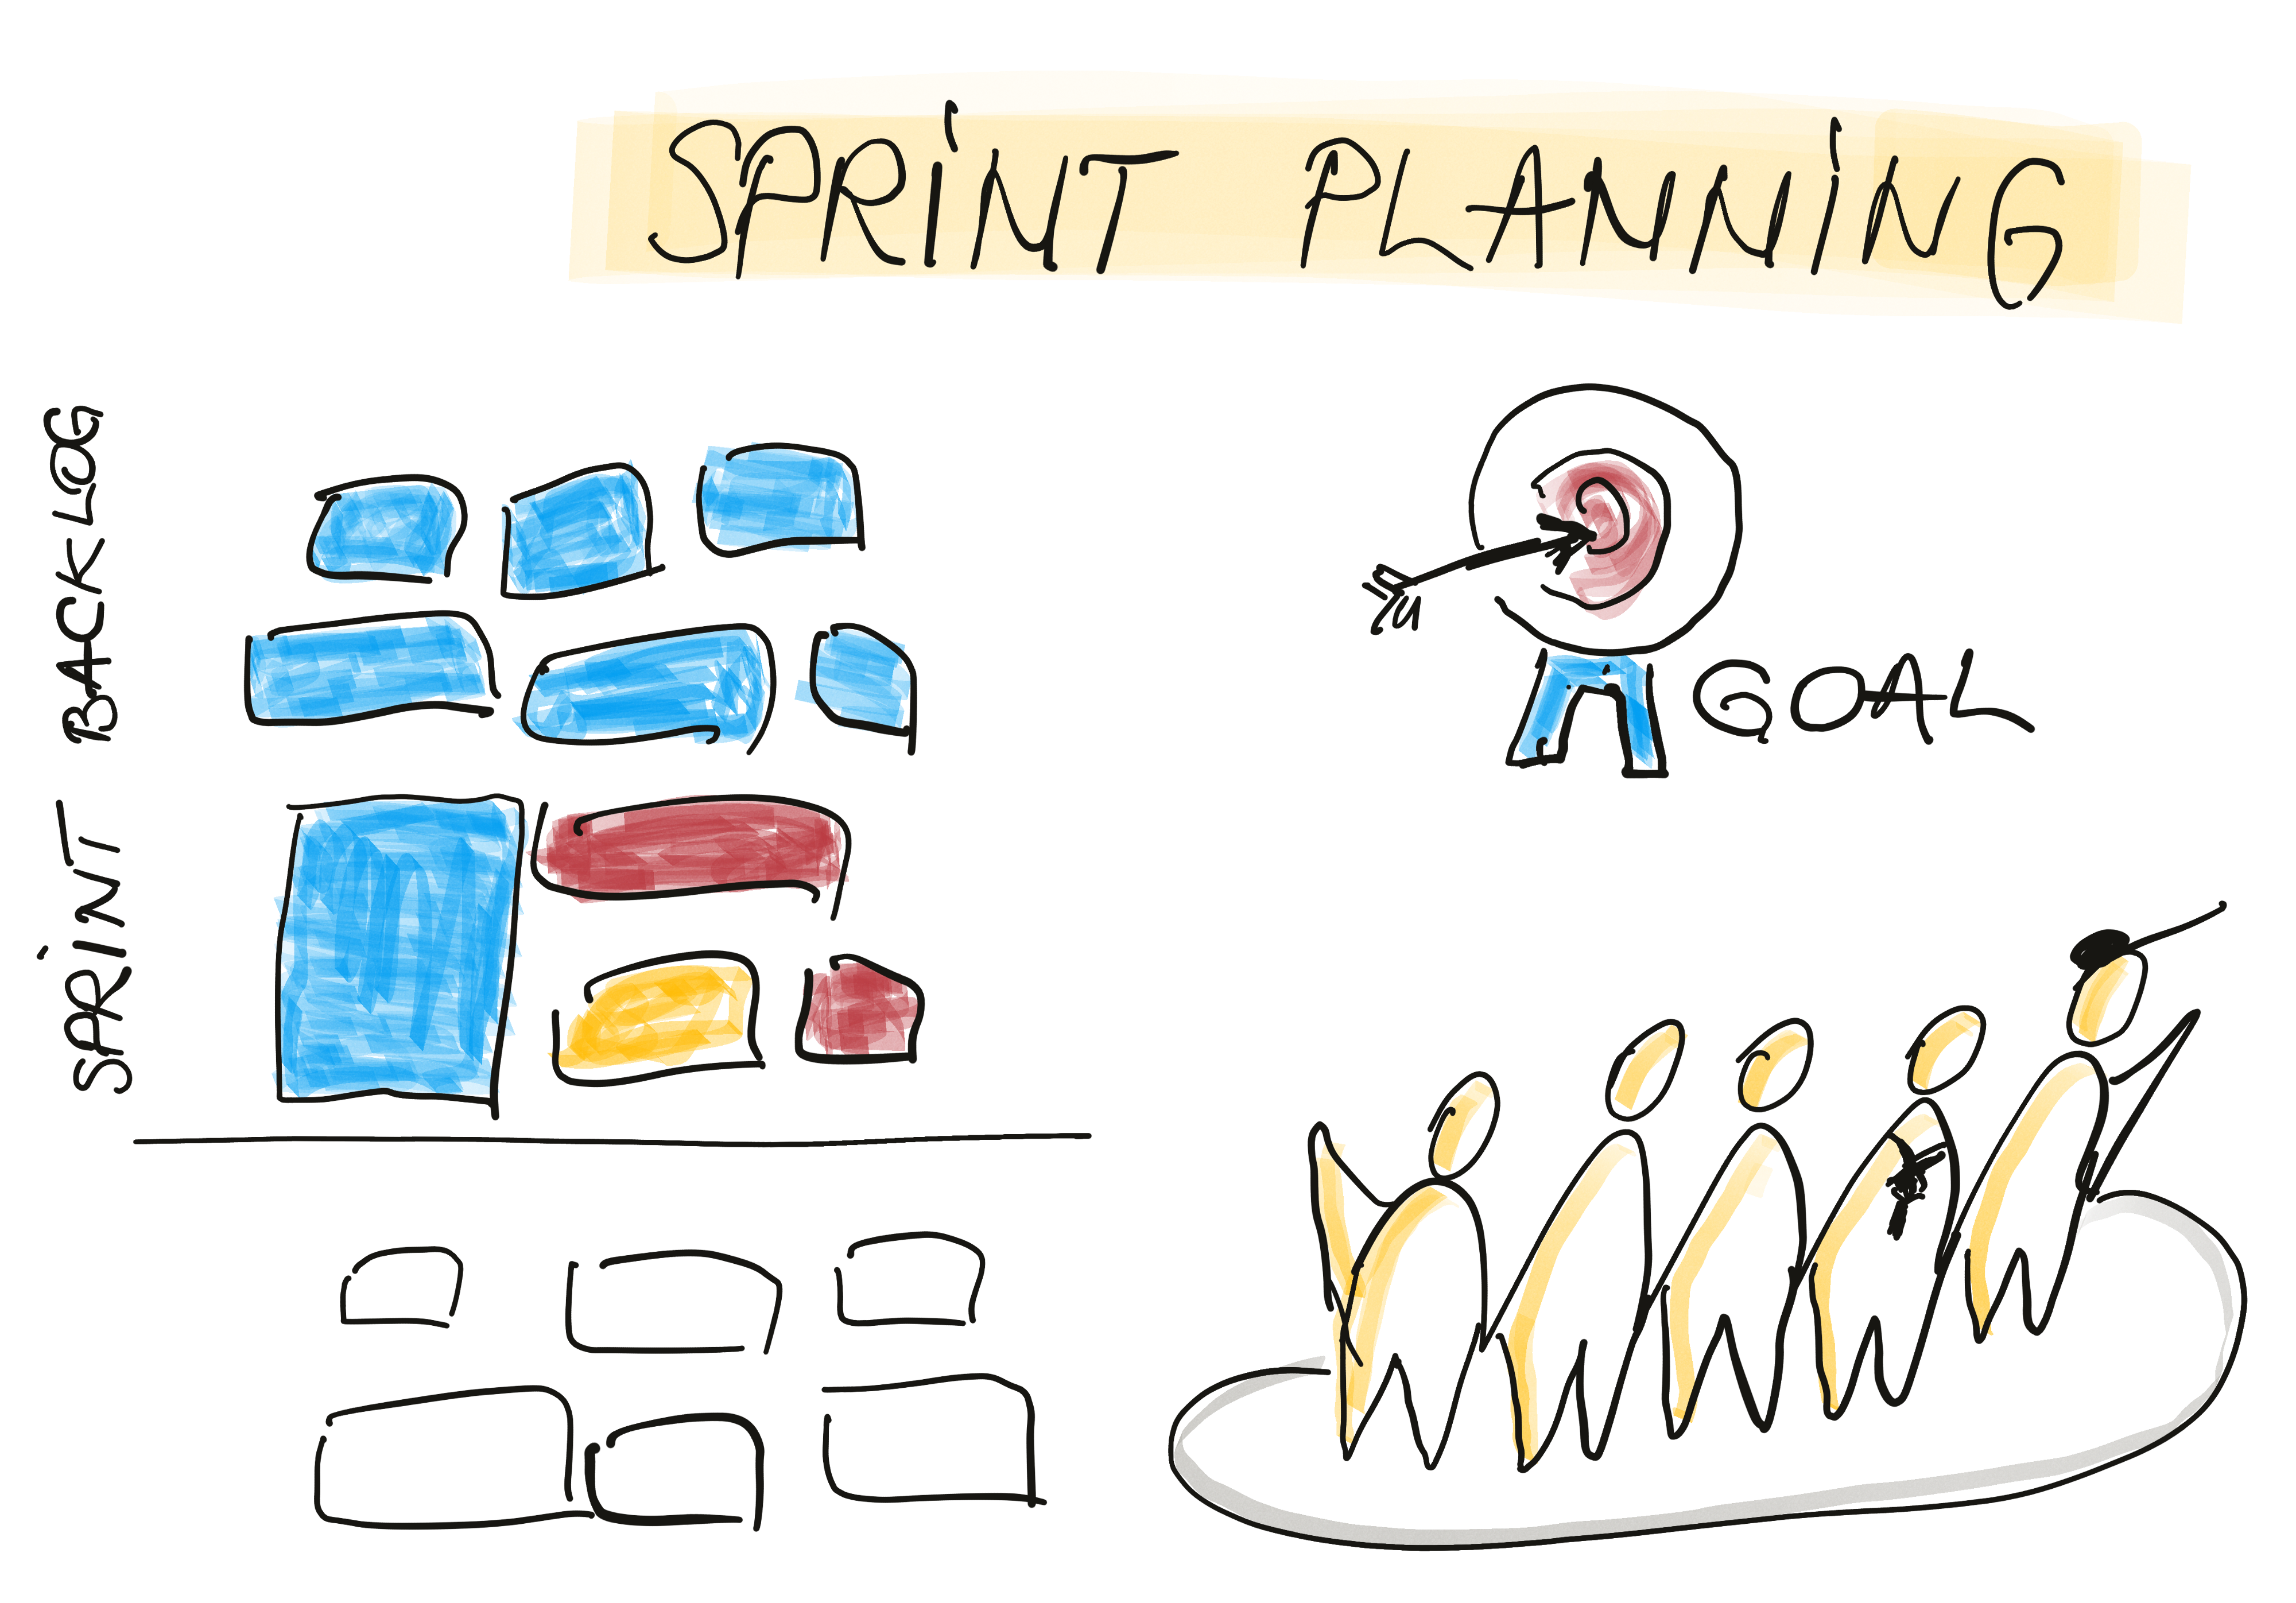 SPRINT PLANNING
SPRINT BACKLOG
GOAL